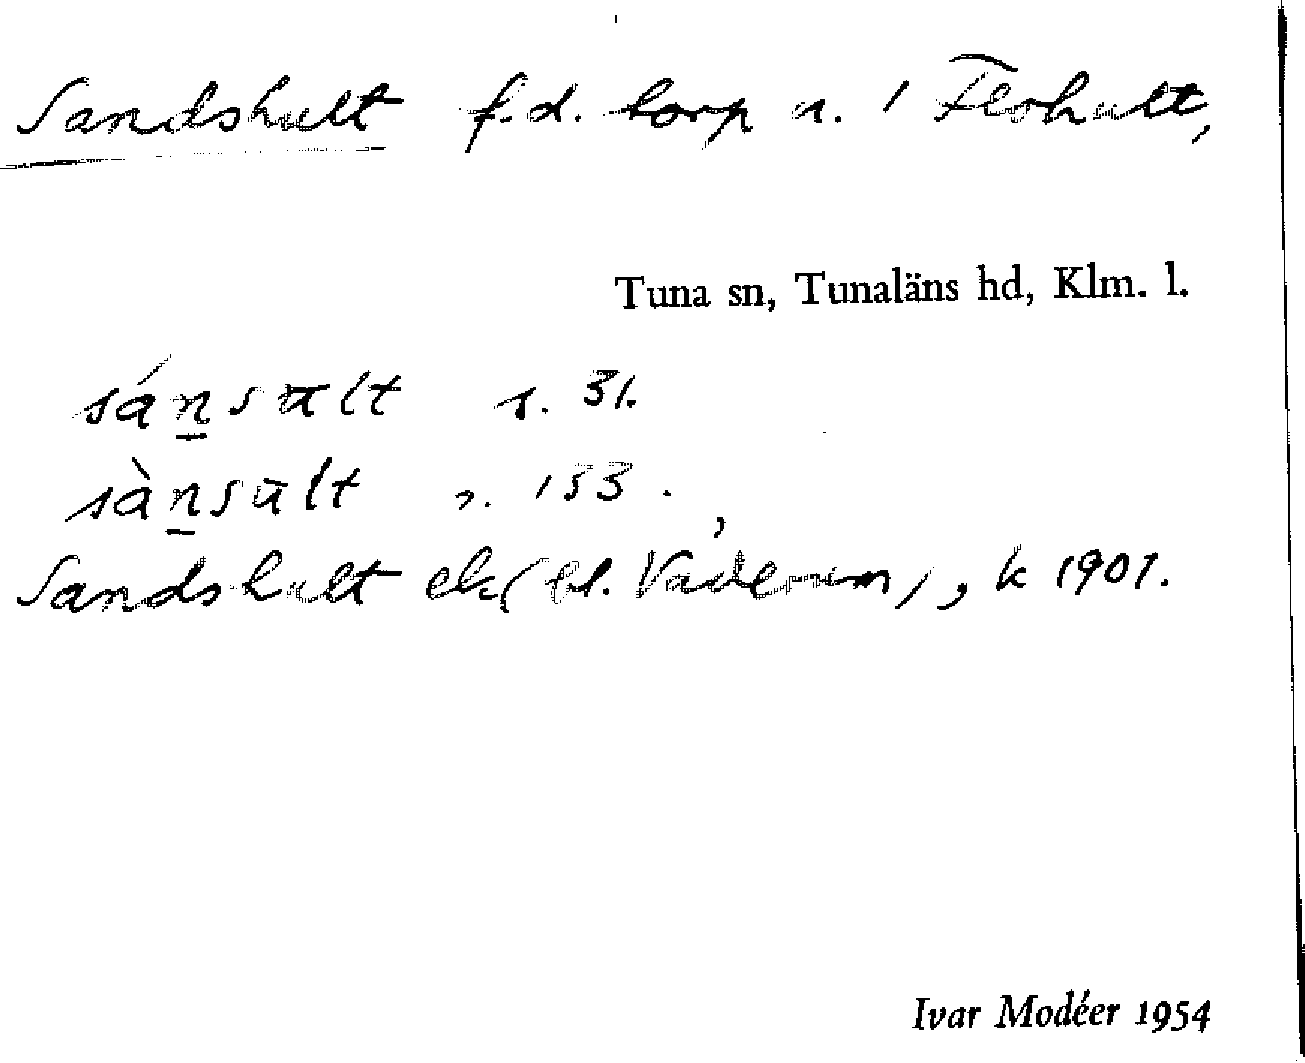 Sandshult f.d. torp u. 1 Flohult,
Tuna sn, Tunaläns hd, Klm. l.
sáṉsult s. 31.
sàṉsult s. 153.
Sandshult ek (bl. Vaderum), k 1901.
Ivar Modéer 1954